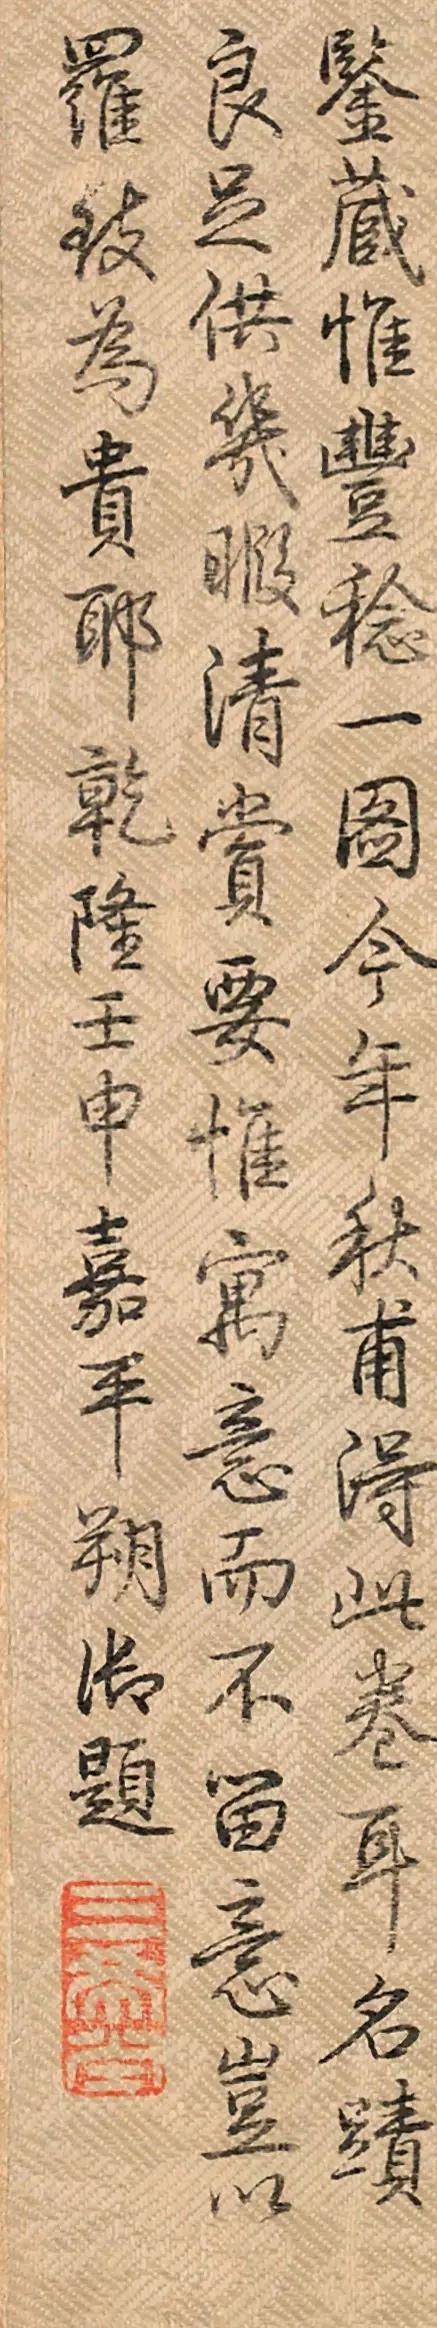 鑒藏惟豐稔一圖今年秋甫得此卷耳名蹟
良足供幾暇清賞要惟寓意而不留意豈以
羅致為貴耶乾隆壬申嘉平朔御題
三希堂